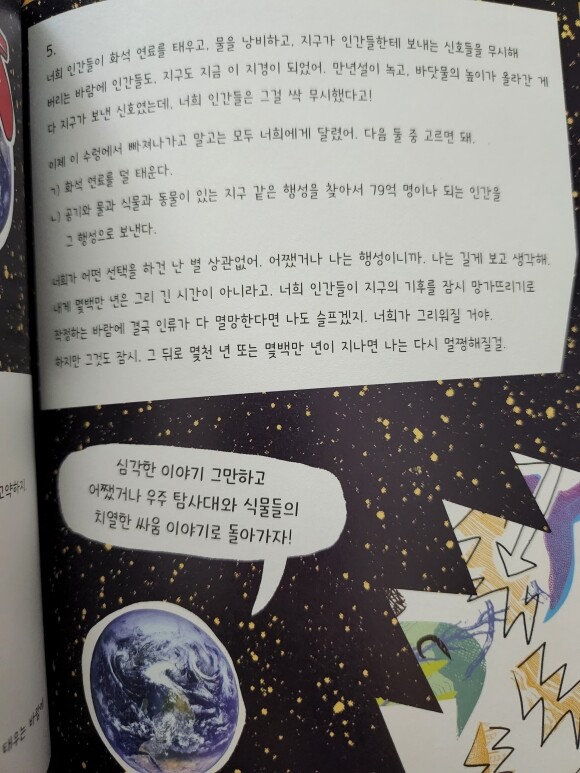 5.
너희 인간들이 화석 연료를 태우고, 물을 낭비하고, 지구가 인간들한테 보내는 신호들을 무시해
버리는 바람에 인간들도, 지구도 지금 이 지경이 되었어. 만년설이 녹고, 바닷물의 높이가 올라간 게
다 지구가 보낸 신호였는데, 너희 인간들은 그걸 싹 무시했다고!
이제 이 수렁에서 빠져나가고 말고는 모두 너희에게 달렸어. 다음 둘 중 고르면 돼.
ㄱ) 화석 연료를 덜 태운다.
ㄴ) 공기와 물과 식물과 동물이 있는 지구 같은 행성을 찾아서 79억 명이나 되는 인간을
그 행성으로 보낸다.
너희가 어떤 선택을 하건 난 별 상관없어. 어쨌거나 나는 행성이니까. 나는 길게 보고 생각해.
내게 몇백만 년은 그리 긴 시간이 아니라고. 너희 인간들이 지구의 기후를 잠시 망가뜨리기로
작정하는 바람에 결국 인류가 다 멸망한다면 나도 슬프겠지. 너희가 그리워질 거야.
하지만 그것도 잠시. 그 뒤로 몇천 년 또는 몇백만 년이 지나면 나는 다시 멀쩡해질걸.
고약하지.
심각한 이야기 그만하고
어쨌거나 우주 탐사대와 식물들의
치열한 싸움 이야기로 돌아가자!
태우는 바람에